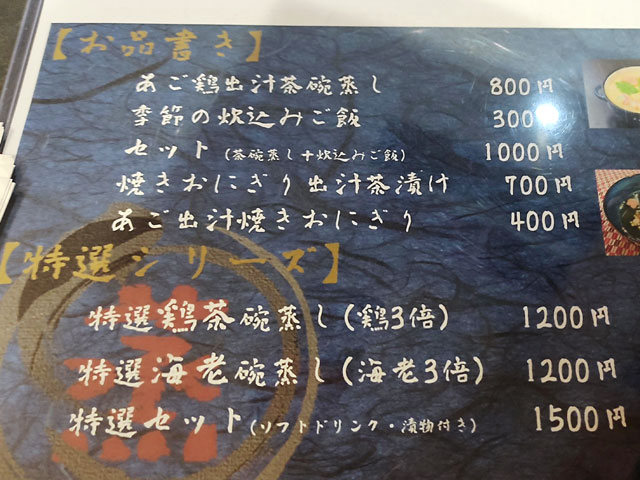 【お品書き】
あご鶏出汁茶碗蒸し 800円
季節の炊込みご飯 300円
セット(茶碗蒸し+炊込みご飯) 1000円
焼きおにぎり出汁茶漬け 700円
あご出汁焼きおにぎり 400円
【特選シリーズ】
特選鶏茶碗蒸し(鶏3倍) 1200円
特選海老碗蒸し(海老3倍) 1200円
特選セット(ソフトドリンク・漬物付き) 1500円